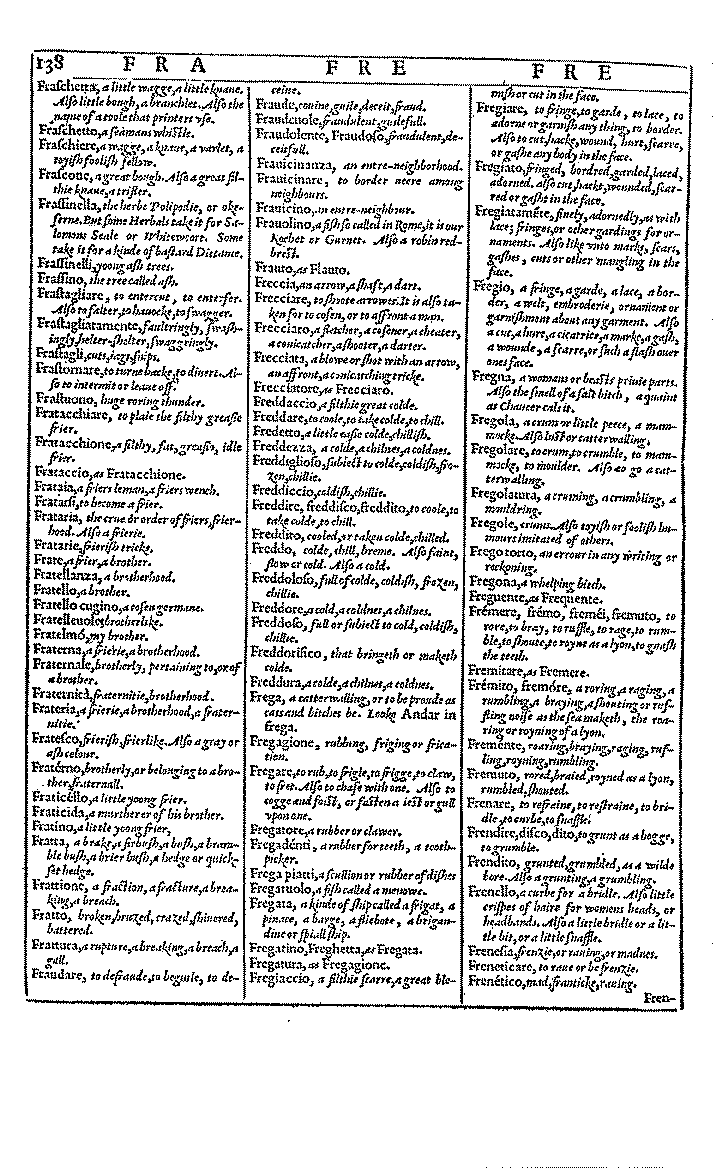 138 F R A F R E F R E
Fraschetta, a little wagge, a little knaue.
Also little bough, a branchlet. Also the
name of a toole that printers vse.
Fraschetto, a seamans whistle.
Fraschiere, a wagge, a knaue, a varlet, a
toyish foolish fellow.
Frascone, a great bough. Also a great fil-
thie knaue, a trifler.
Frassinella, the herbe Polipodie, or oke-
ferne. But some Herbals take it for Sa-
lomons Seale or Whitewort. Some
take it for a kinde of bastard Dittane.
Frassinelli, young ash trees.
Frassino, the tree called ash.
Frastagliare, to entercut, to enterfor.
Also to falter, to hauocke, to swagger.
Frastagliatamente, faultringly, swash-
ingly, helter-shelter, swaggringly.
Frastagli, cuts, iags, snips.
Frastornare, to turne backe, to diuert. Al-
so to intermit or leaue off.
Frastuono, huge roring thunder.
Fratacchiare, to plaie the filthy greasie
frier.
Fratacchione, a filthy, fat, greasie, idle
frier.
Frataccio, as Fratacchione.
Frataia, a friers leman, a friers wench.
Fratarsi, to become a frier.
Frataria, the crue or order of friers, frier-
hood. Also a frierie.
Fratarie, frierish tricks.
Frate, a frier, a brother.
Fratellanza, a brotherhood.
Fratello, a brother.
Fratello cugino, a cosen germane.
Fratelleuole, brotherlike.
Fratelmó, my brother.
Fraterna, a frierie, a brotherhood.
Fraternale, brotherly, pertaining to, or of
a brother.
Fraternità, fraternitie, brotherhood.
Frateria, a frierie, a brotherhood, a frater-
nitie.
Fratesco, frierish, frierlike. Also a gray or
ash colour.
Fratérno, brotherly, or belonging to a bro-
ther, fraternall.
Fraticéllo, a little young frier.
Fraticida, a murtherer of his brother.
Fratino, a little young frier,
Fratta, a brake, a firbush, a bush, a bram-
ble bush, a brier bush, a hedge or quick-
set hedge.
Frattione, a fraction, a fracture, a brea-
king, a breach.
Fratto, broken, bruzed, crazed, shiuered,
battered.
Frattura, a rupture, a breaking, a breach, a
gull.
Fraudare, to defraude, to beguile, to de-
ceiue.
Fraude, couine, guile, deceit, fraud.
Fraudeuole, fraudulent, guilefull.
Fraudolente, Fraudoso, fraudulent, de-
ceitfull.
Frauicinanza, an entre-neighborhood.
Frauicinare, to border neere among
neighbours.
Frauicino, an entre-neighbour.
Frauolino, a fish so called in Rome, it is our
Rochet or Gurnet. Also a robin red-
brest.
Frauto, as Flauto.
Freccia, an arrow, a shaft, a dart.
Frecciare, to shoote arrowes. It is also ta-
ken for to cosen, or to affront a man.
Frecciaro, a fletcher, a cosener, a cheater,
a conicatcher, a shooter, a darter.
Frecciata, a blowe or shot with an arrow,
an affront, a conicatching tricke.
Frecciatore, as Frecciaro.
Freddaccio, a filthie great colde.
Freddare, to coole, to take colde, to chill.
Fredetto, a little easie colde, chillish.
Freddezza, a colde, a chilnes, a coldnes.
Freddiglioso, subiect to colde, coldish, fro-
zen, chillie.
Freddiccio, coldish, chillie.
Freddire, freddisco, freddito, to coole, to
take colde, to chill.
Freddito, cooled, or taken colde, chilled.
Freddo, colde, chill, breme. Also faint,
slow or cold. Also a cold.
Freddoloso, full of colde, coldish, frozen,
chillie.
Freddore, a cold, a coldnes, a chilnes.
Freddoso, full or subiect to cold, coldish,
chillie.
Freddorifico, that bringeth or maketh
colde.
Freddura, a colde, a chilnes, a coldnes.
Frega, a catterwalling, or to be proude as
cats and bitches be. Looke Andar in
frega.
Fregagione, rubbing, friging or frica-
tion.
Fregare, to rub, to frigle, to frigge, to claw,
to fret. Also to chafe with one. Also to
cogge and foist, or fasten a iest or gull
vpon one.
Fregatore, a rubber or clawer.
Fregadénti, a rubber for teeth, a tooth-
picker.
Frega piatti, a scullion or rubber of dishes
Fregatuolo, a fish called a menowe.
Fregata, a kinde of ship called a frigat, a
pinace, a barge, a fliebote, a brigan-
dine or spiall ship.
Fregatino, Freghetta, as Fregata.
Fregatura, as Fregagione.
Fregiaccio, a filthie scarre, a great ble-
mish or cut in the face.
Fregiare, to fringe, to garde, to lace, to
adorne or garnish any thing, to border.
Also to cut, hacke, wound, hurt, scarre,
or gashe any body in the face.
Fregiato, fringed, bordred, garded, laced,
adorned. also cut, hackt, wounded, scar-
red or gasht in the face.
Fregiataméte, finely, adornedly, as with
lace, fringes, or other gardings for or-
naments. Also like vnto marks, scars,
gashes, cuts or other mangling in the
face.
Fregio, a fringe, a garde, a lace, a bor-
der, a welt, embroderie, ornament or
garnishment about any garment. Also
a cut, a hure, a cicatrice, a marke, a gash,
a wounde, a scarre, or such a slash ouer
ones face.
Fregna, a womans or beasts priuie parts.
Also the smell of a salt bitch, a quaint
as Chaucer cals it.
Fregola, a crum or little peece, a mam-
mocke. Also lust or catterwalling.
Fregolare, to crum, to crumble, to mam-
mocke, to moulder. Also to go a cat-
terwalling.
Fregolatura, a cruming, a crumbling, a
mouldring.
Fregole, crums. Also toyish or foolish hu-
mours imitated of others.
Frego torto, an errour in any writing or
reckoning.
Fregona, a whelping bitch.
Freguente, as Frequente.
Frémere, frémo, freméi, fremuto, to
rore, to bray, to ruffle, to rage, to rum-
ble, to snute, to royne as a lyon, to gnash
the teeth.
Fremitare, as Fremere.
Frémito, fremóre, a roring, a raging, a
rumbling, a braying, a shouting or ruf-
fling noise as the sea maketh, the roa-
ring or royning of a lyon.
Freménte, roaring, braying, raging, ruf-
ling, royning, rumbling.
Fremuto, rored, braied, royned as a lyon,
rumbled, shouted.
Frenare, to refraine, to restraine, to bri-
dle, to curbe, to snaffle.
Frendire, disco, dito, to grunt as a hogge,
to grumble.
Frendito, grunted, grumbled, as a wilde
bore. Also a grunting, a grumbling.
Frenello, a curbe for a bridle. Also little
crispes of haire for womens heads, or
headbands. Also a little bridle or a lit-
tle bit, or a little snaffle.
Frenesia, frenzie, or rauing, or madnes.
Freneticare, to raue or be frenzie.
Frenético, mad, franticke, rauing.
Fren-